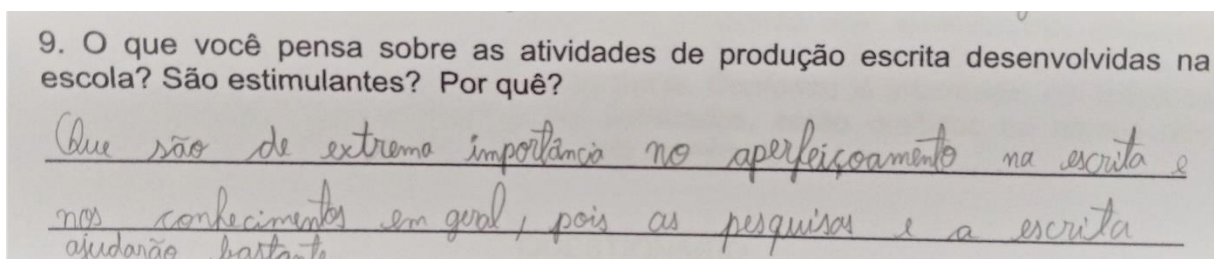 9. O que você pensa sobre as atividades de produção escrita desenvolvidas na
escola? São estimulantes? Por quê?
Que são de extrema importância no aperfeiçoamento na escrita e
nos conhecimentos em geral, pois as pesquisas e a escrita
ajudarão bastante